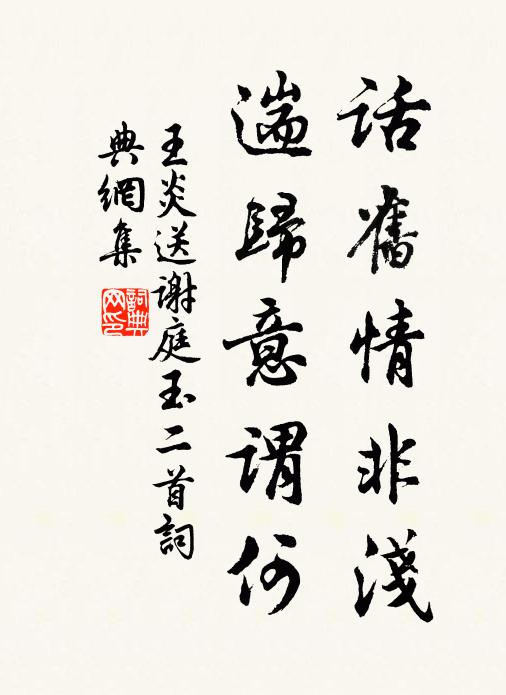 話舊情非淺
遄歸意謂何
王炎送謝庭玉二首詞
典網集
詞典网印